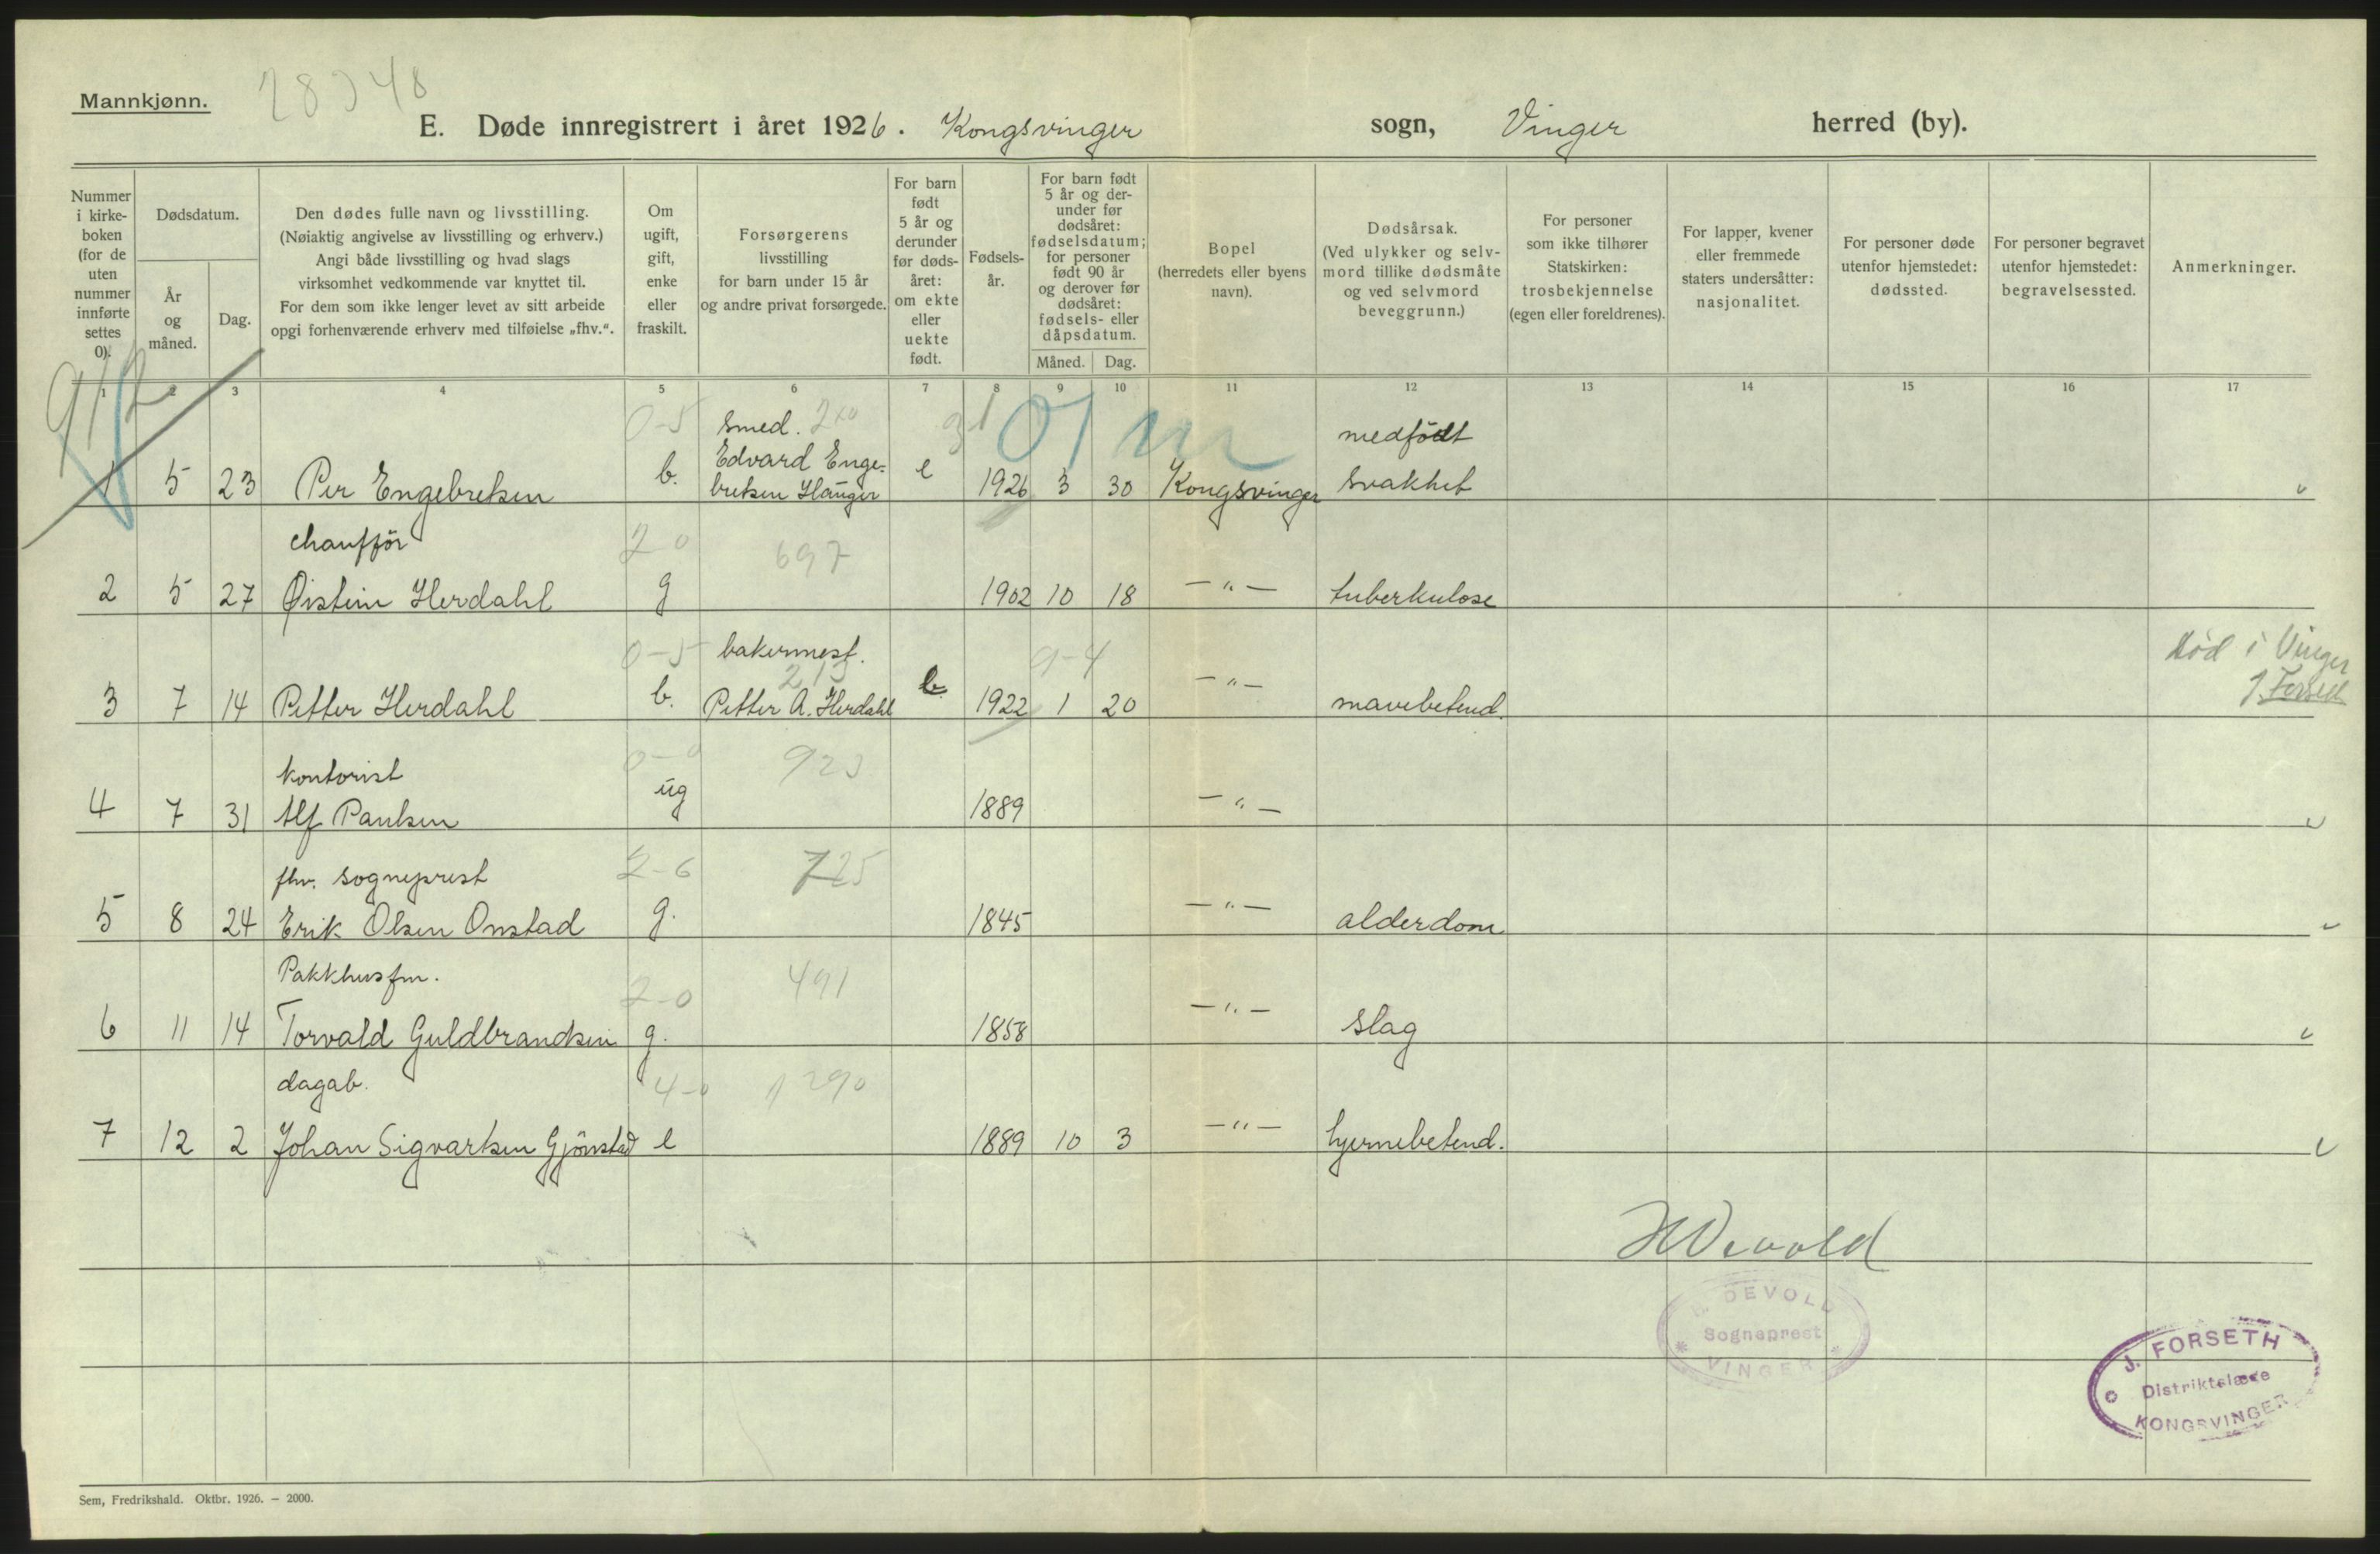 Mannkjønn.
28348
E. Døde innregistrert i året 1926. Kongsvinger sogn, Vinger herred (by).
Nummer
i kirke-
boken
(for de
uten
nummer
innførte
settes
0).
Dødsdatum.
År
og
måned.
Dag.
Den dødes fulle navn og livsstilling.
(Nøiaktig angivelse av livsstilling og erhverv.)
Angi både livsstilling og hvad slags
virksomhet vedkommende var knyttet til.
For dem som ikke lenger levet av sitt arbeide
opgi forhenværende erhverv med tilføielse „fhv.“.
Om
ugift,
gift,
enke
eller
fraskilt.
Forsørgerens
livsstilling
for barn under 15 år
og andre privat forsørgede.
For barn
født
5 år og
derunder
før døds-
året:
om ekte
eller
uekte
født.
Fødsels-
år.
For barn født
5 år og der-
under før
dødsåret:
fødselsdatum;
for personer
født 90 år
og derover før
dødsåret:
fødsels- eller
dåpsdatum.
Måned. Dag.
Bopel
(herredets eller byens
navn).
Dødsårsak.
(Ved ulykker og selv-
mord tillike dødsmåte
og ved selvmord
beveggrunn.)
For personer
som ikke tilhører
Statskirken:
trosbekjennelse
(egen eller foreldrenes).
For lapper, kvener
eller fremmede
staters undersåtter:
nasjonalitet.
For personer døde
utenfor hjemstedet:
dødssted.
For personer begravet
utenfor hjemstedet:
begravelsessted.
Anmerkninger.
1 2 3 4 5 6 7 8 9 10 11 12 13 14 15 16 17
912
0-5 smed. 210 31 01 m medfödt
Edvard Enge-
1 5 23 Per Engebretsen b. bretsen Hauger e 1926 3 30 Kongsvinger svakhet
chaufför 20 697
2 5 27 Øistein Herdahl g 1902 10 18 —"— tuberkulose
0-5 bakermest. 213 9-4 Död i Vinger
3 7 14 Petter Herdahl b. Petter A. Herdahl b. 1922 1 20 —"— mavebetend. J. Forseth
kontorist 0-0 923
4 7 31 Alf Paulsen ug 1889 —"—
fhv. sogneprest 2-6 725
5 8 24 Erik Olsen Onstad g. 1845 —"— alderdom
Pakkhusfm. 2-0 491
6 11 14 Torvald Guldbrandsen g. 1858 —"— slag
dagab. 4-0 1290
7 12 2 Johan Sigvartsen Gjönstad e 1889 10 3 —"— hjernebetend.
H Devold
H. DEVOLD
Sogneprest
* VINGER *
J. FORSETH
Distriktslæge
KONGSVINGER
Sem, Fredrikshald. Oktbr. 1926. – 2000.